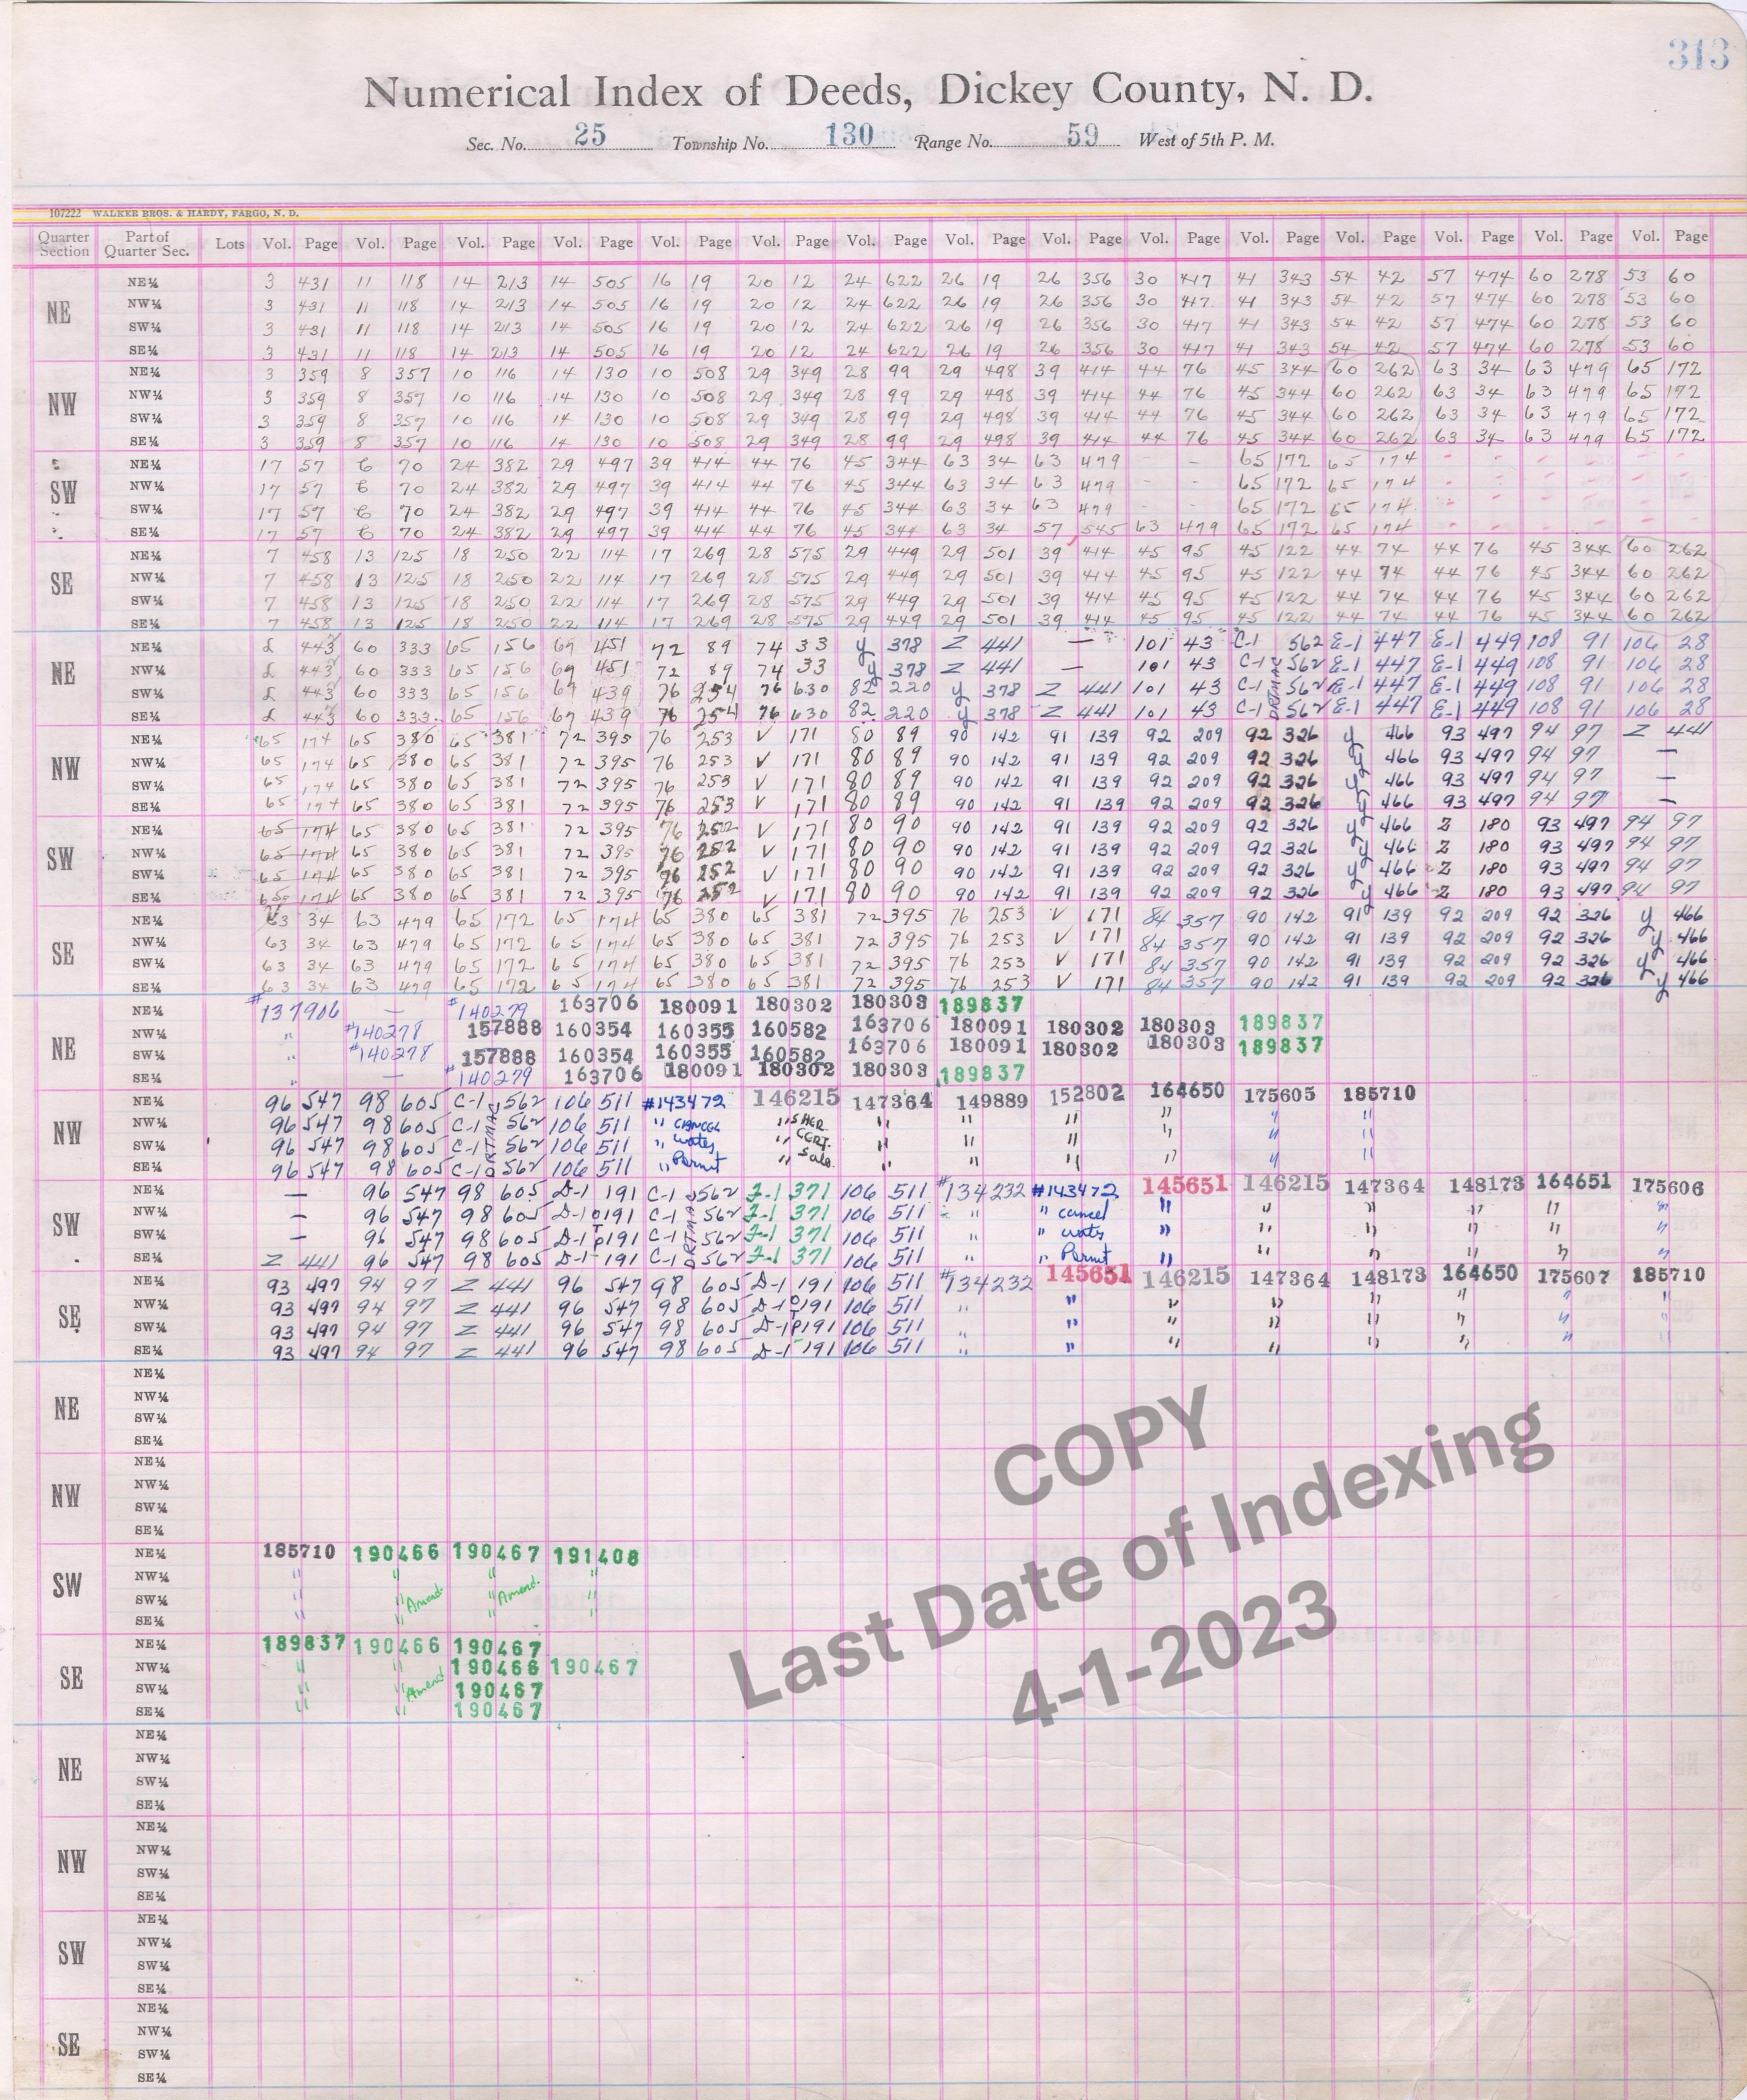 313
Numerical Index of Deeds, Dickey County, N. D.
Sec. No. 25 Township No. 130 Range No. 59 West of 5th P. M.
107222 WALKER BROS. & HARDY, FARGO, N. D.
Quarter Section Part of Quarter Sec. Lots Vol. Page Vol. Page Vol. Page Vol. Page Vol. Page Vol. Page Vol. Page Vol. Page Vol. Page Vol. Page Vol. Page Vol. Page Vol. Page Vol. Page Vol. Page
NE
NE¼ 3 431 11 118 14 213 14 505 16 19 20 12 24 622 26 19 26 356 30 417 41 343 54 42 57 474 60 278 53 60
NW¼ 3 431 11 118 14 213 14 505 16 19 20 12 24 622 26 19 26 356 30 417 41 343 54 42 57 474 60 278 53 60
SW¼ 3 431 11 118 14 213 14 505 16 19 20 12 24 622 26 19 26 356 30 417 41 343 54 42 57 474 60 278 53 60
SE¼ 3 431 11 118 14 213 14 505 16 19 20 12 24 622 26 19 26 356 30 417 41 343 54 42 57 474 60 278 53 60
NW
NE¼ 3 359 8 357 10 116 14 130 10 508 29 349 28 99 29 498 39 414 44 76 45 344 60 262 63 34 63 479 65 172
NW¼ 3 359 8 357 10 116 14 130 10 508 29 349 28 99 29 498 39 414 44 76 45 344 60 262 63 34 63 479 65 172
SW¼ 3 359 8 357 10 116 14 130 10 508 29 349 28 99 29 498 39 414 44 76 45 344 60 262 63 34 63 479 65 172
SE¼ 3 359 8 357 10 116 14 130 10 508 29 349 28 99 29 498 39 414 44 76 45 344 60 262 63 34 63 479 65 172
SW
NE¼ 17 57 70 24 382 29 497 39 414 44 76 45 344 63 34 63 479 - - 65 172 65 174
NW¼ 17 57 70 24 382 29 497 39 414 44 76 45 344 63 34 63 479 - - 65 172 65 174
SW¼ 17 57 70 24 382 29 497 39 414 44 76 45 344 63 34 63 479 65 172 65 174
SE¼ 17 57 70 24 382 29 497 39 414 44 76 45 344 63 34 57 545 63 479 65 172 65 174
SE
NE¼ 7 458 13 125 18 250 22 114 17 269 28 575 29 449 29 501 39 414 45 95 45 122 44 74 44 76 45 344 60 262
NW¼ 7 458 13 125 18 250 22 114 17 269 28 575 29 449 29 501 39 414 45 95 45 122 44 74 44 76 45 344 60 262
SW¼ 7 458 13 125 18 250 22 114 17 269 28 575 29 449 29 501 39 414 45 95 45 122 44 74 44 76 45 344 60 262
SE¼ 7 458 13 125 18 250 22 114 17 269 28 575 29 449 29 501 39 414 45 95 45 122 44 74 44 76 45 344 60 262
NE
NE¼ 443 60 333 65 156 69 451 72 89 74 33 y 378 Z 441 — 101 43 C-1 562 E-1 447 E-1 449 108 91 106 28
NW¼ 443 60 333 65 156 69 451 72 89 74 33 y 378 Z 441 — 101 43 C-1 562 E-1 447 E-1 449 108 91 106 28
SW¼ 443 60 333 65 156 69 439 76 254 76 630 82 220 y 378 Z 441 101 43 C-1 562 E-1 447 E-1 449 108 91 106 28
SE¼ 443 60 333 65 156 69 439 76 254 76 630 82 220 y 378 Z 441 101 43 C-1 562 E-1 447 E-1 449 108 91 106 28
NW
NE¼ 65 174 65 380 65 381 72 395 76 253 V 171 80 89 90 142 91 139 92 209 92 326 y 466 93 497 94 97 Z 441
NW¼ 65 174 65 380 65 381 72 395 76 253 V 171 80 89 90 142 91 139 92 209 92 326 y 466 93 497 94 97 —
SW¼ 65 174 65 380 65 381 72 395 76 253 V 171 80 89 90 142 91 139 92 209 92 326 y 466 93 497 94 97 —
SE¼ 65 174 65 380 65 381 72 395 76 253 V 171 80 89 90 142 91 139 92 209 92 326 y 466 93 497 94 97 —
SW
NE¼ 65 174 65 380 65 381 72 395 76 252 V 171 80 90 90 142 91 139 92 209 92 326 y 466 Z 180 93 497 94 97
NW¼ 65 174 65 380 65 381 72 395 76 252 V 171 80 90 90 142 91 139 92 209 92 326 y 466 Z 180 93 497 94 97
SW¼ 65 174 65 380 65 381 72 395 76 252 V 171 80 90 90 142 91 139 92 209 92 326 y 466 Z 180 93 497 94 97
SE¼ 65 174 65 380 65 381 72 395 76 252 V 171 80 90 90 142 91 139 92 209 92 326 y 466 Z 180 93 497 94 97
SE
NE¼ 63 34 63 479 65 172 65 174 65 380 65 381 72 395 76 253 V 171 84 357 90 142 91 139 92 209 92 326 y 466
NW¼ 63 34 63 479 65 172 65 174 65 380 65 381 72 395 76 253 V 171 84 357 90 142 91 139 92 209 92 326 y 466
SW¼ 63 34 63 479 65 172 65 174 65 380 65 381 72 395 76 253 V 171 84 357 90 142 91 139 92 209 92 326 y 466
SE¼ 63 34 63 479 65 172 65 174 65 380 65 381 72 395 76 253 V 171 84 357 90 142 91 139 92 209 92 326 y 466
NE
NE¼ #137906 — #140279 163706 180091 180302 180303 189837
NW¼ " #140278 157888 160354 160355 160582 163706 180091 180302 180303 189837
SW¼ " #140278 157888 160354 160355 160582 163706 180091 180302 180303 189837
SE¼ " — #140279 163706 180091 180302 180303 189837
NW
NE¼ 96 547 98 605 C-1 562 106 511 #143472 146215 147364 149889 152802 164650 175605 185710
NW¼ 96 547 98 605 C-1 562 106 511 " CANCEL " SHER. " " " " " "
SW¼ 96 547 98 605 C-1 562 106 511 " water " CERT. " " " " " "
SE¼ 96 547 98 605 C-1 562 106 511 " Permit " Sale. " " " " " "
SW
NE¼ — 96 547 98 605 D-1 191 C-1 562 J-1 371 106 511 #134232 #143472 145651 146215 147364 148173 164651 175606
NW¼ — 96 547 98 605 D-1 191 C-1 562 J-1 371 106 511 " " cancel " " " " " "
SW¼ — 96 547 98 605 D-1 191 C-1 562 J-1 371 106 511 " " water " " " " " "
SE¼ Z 441 96 547 98 605 D-1 191 C-1 562 J-1 371 106 511 " " Permit " " " " " "
SE
NE¼ 93 497 94 97 Z 441 96 547 98 605 D-1 191 106 511 #134232 145651 146215 147364 148173 164650 175607 185710
NW¼ 93 497 94 97 Z 441 96 547 98 605 D-1 191 106 511 " " " " " " " "
SW¼ 93 497 94 97 Z 441 96 547 98 605 D-1 191 106 511 " " " " " " " "
SE¼ 93 497 94 97 Z 441 96 547 98 605 D-1 191 106 511 " " " " " " " "
NE
NE¼
NW¼
SW¼
SE¼
NW
NE¼
NW¼
SW¼
SE¼
SW
NE¼ 185710 190466 190467 191408
NW¼ " " " "
SW¼ " " Amend. " Amend. "
SE¼ " " " "
SE
NE¼ 189837 190466 190467
NW¼ " " 190466 190467
SW¼ " " Amend 190467
SE¼ " " 190467
NE
NE¼
NW¼
SW¼
SE¼
NW
NE¼
NW¼
SW¼
SE¼
SW
NE¼
NW¼
SW¼
SE¼
SE
NE¼
NW¼
SW¼
SE¼
COPY
Last Date of Indexing
4-1-2023